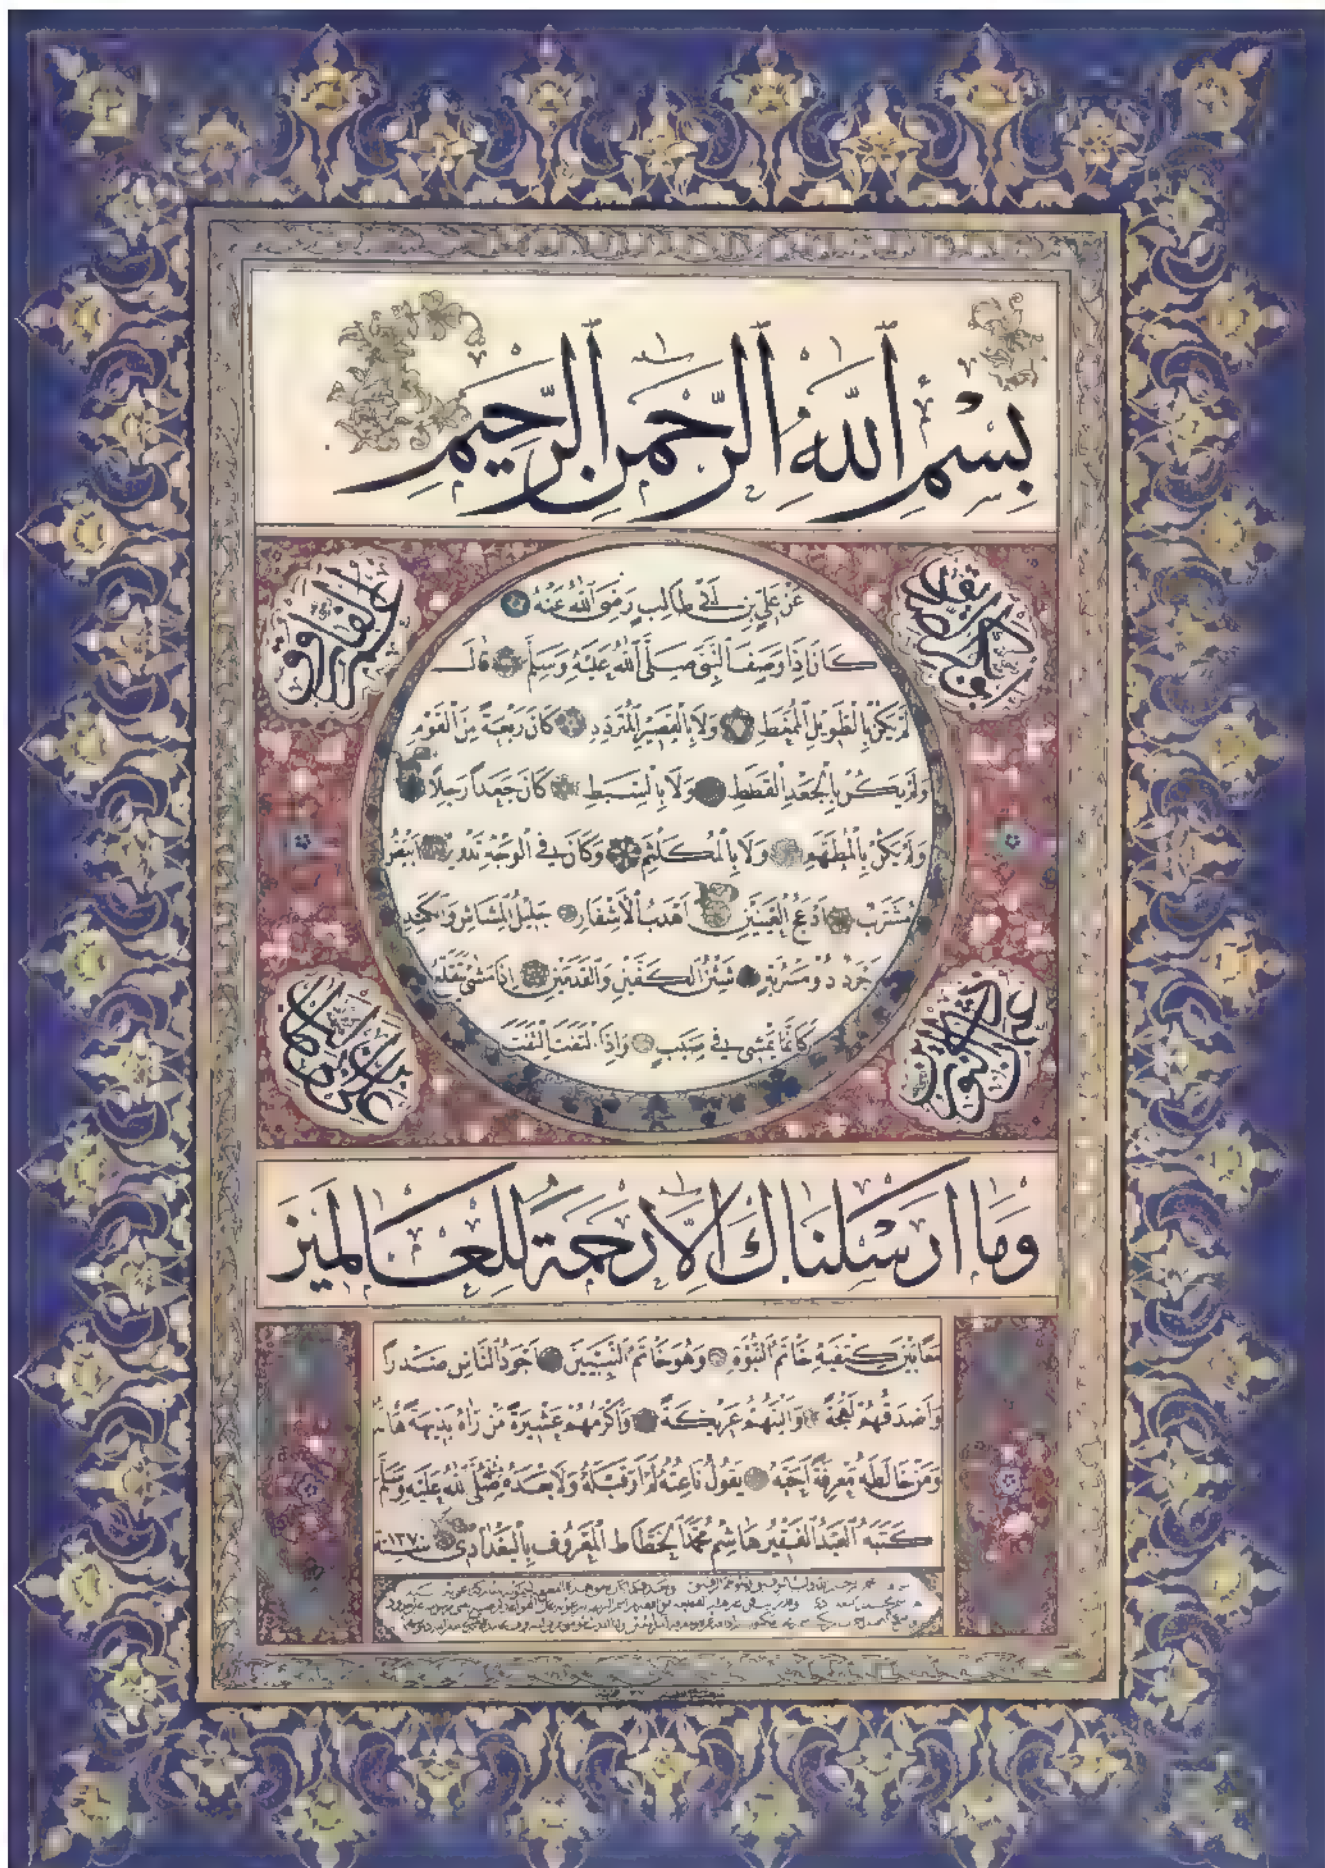 بِسْمِ ٱللَّهِ ٱلرَّحْمٰنِ ٱلرَّحِيمِ
أبو بكر الصديق
عمر الفاروق
عَنْ عَلِيِّ بْنِ أَبِي طَالِبٍ رَضِيَ ٱللّٰهُ عَنْهُ
كَانَ إِذَا وَصَفَ ٱلنَّبِيَّ صَلَّى ٱللّٰهُ عَلَيْهِ وَسَلَّمَ قَالَ
لَمْ يَكُنْ بِالطَّوِيلِ الْمُمَّغِطِ وَلَا بِالْقَصِيرِ الْمُتَرَدِّدِ كَانَ رَبْعَةً مِنَ الْقَوْمِ
وَلَمْ يَكُنْ بِالْجَعْدِ الْقَطَطِ وَلَا بِالسَّبِطِ كَانَ جَعْدًا رَجِلًا
وَلَمْ يَكُنْ بِالْمُطَهَّمِ وَلَا بِالْمُكَلْثَمِ وَكَانَ فِي الْوَجْهِ تَدْوِيرٌ أَبْيَضُ
مُشْرَبٌ أَدْعَجُ الْعَيْنَيْنِ أَهْدَبُ الْأَشْفَارِ جَلِيلُ الْمُشَاشِ وَالْكَتَدِ
أَجْرَدُ ذُو مَسْرُبَةٍ شَثْنُ الْكَفَّيْنِ وَالْقَدَمَيْنِ إِذَا مَشَى يَتَقَلَّعُ
كَأَنَّمَا يَمْشِي فِي صَبَبٍ وَإِذَا الْتَفَتَ الْتَفَتَ
عثمان ذو النورين
علي المرتضى
وَمَا أَرْسَلْنَاكَ إِلَّا رَحْمَةً لِلْعَالَمِينَ
مَعًا بَيْنَ كَتِفَيْهِ خَاتَمُ النُّبُوَّةِ وَهُوَ خَاتَمُ النَّبِيِّينَ أَجْوَدُ النَّاسِ صَدْرًا
وَأَصْدَقُهُمْ لَهْجَةً وَأَلْيَنُهُمْ عَرِيكَةً وَأَكْرَمُهُمْ عَشِيرَةً مَنْ رَآهُ بَدِيهَةً هَابَهُ
وَمَنْ خَالَطَهُ مَعْرِفَةً أَحَبَّهُ يَقُولُ نَاعِتُهُ لَمْ أَرَ قَبْلَهُ وَلَا بَعْدَهُ مِثْلَهُ صَلَّى اللّٰهُ عَلَيْهِ وَسَلَّمَ
كَتَبَهُ الْعَبْدُ الْفَقِيرُ هَاشِمُ مُحَمَّدٍ الْخَطَّاطُ الْمَعْرُوفُ بِالْبَغْدَادِيِّ سَنَةَ ١٣٧٠